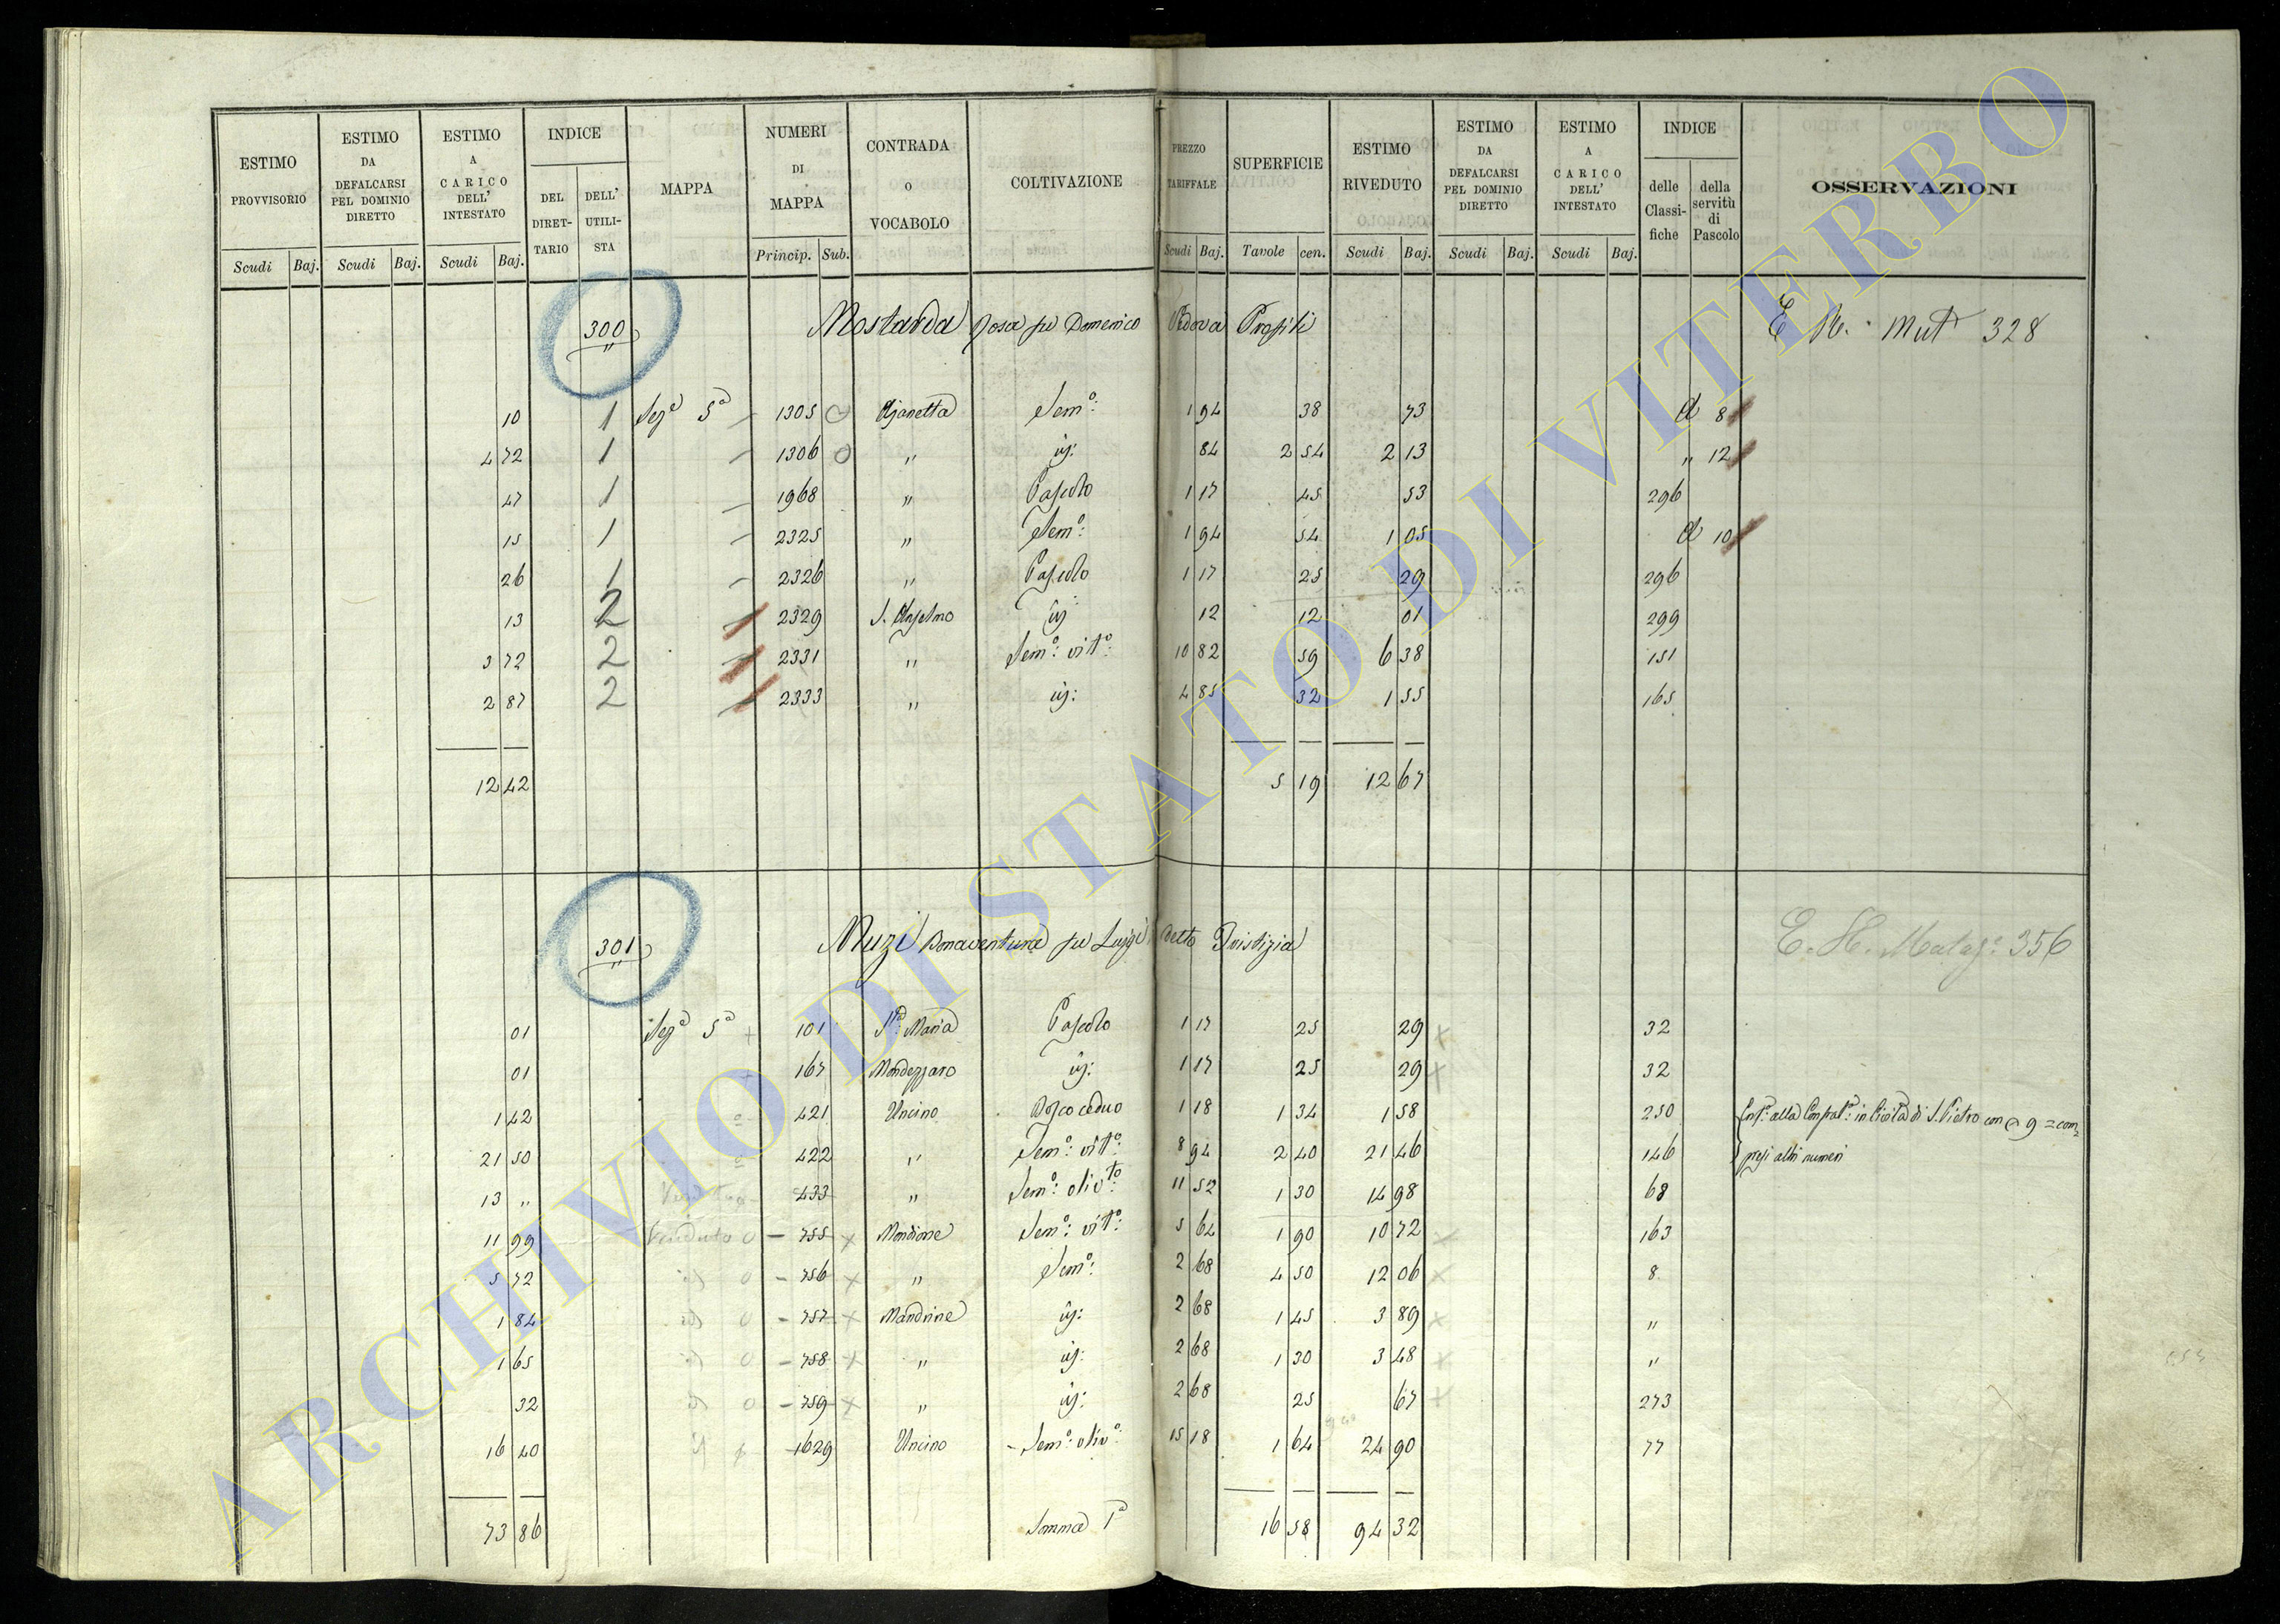 ESTIMO PROVVISORIO Scudi Baj.
ESTIMO DA DEFALCARSI PEL DOMINIO DIRETTO Scudi Baj.
ESTIMO A CARICO DELL' INTESTATO Scudi Baj.
INDICE DEL DIRET-TARIO DELL' UTILI-STA
MAPPA
NUMERI DI MAPPA Princip. Sub.
CONTRADA O VOCABOLO
COLTIVAZIONE
PREZZO TARIFFALE Scudi Baj.
SUPERFICIE Tavole cen.
ESTIMO RIVEDUTO Scudi Baj.
ESTIMO DA DEFALCARSI PEL DOMINIO DIRETTO Scudi Baj.
ESTIMO A CARICO DELL' INTESTATO Scudi Baj.
INDICE delle Classi-fiche della servitù di Pascolo
OSSERVAZIONI
300 Mostarda Rosa fu Domenico Vedova Profili E N. Mut 328
10 1 Sezᵉ 5ª 1305 Ajanetta Semº: 1 94 38 73 d 8
4 72 1 1306 " id: 84 2 54 2 13 " 12
47 1 1968 " Pascolo 1 17 45 53 296
15 1 2325 " Semº: 1 94 54 1 05 d 10
26 1 2326 " Pascolo 1 17 25 29 296
13 2 2329 S. Anselmo id 12 12 01 299
3 72 2 2331 " Semº: vitº: 10 82 59 6 38 151
2 87 2 2333 " id: 4 85 32 1 55 165
12 42 5 19 12 67
301 Muzi Bonaventura fu Luigi detto Giustizia 356
01 Sezᵉ 5ª 101 Sᵗᵃ Maria Pascolo 1 17 25 29 32
01 167 Mondezzaro id: 1 17 25 29 32
1 42 421 Uncino Bosco ceduo 1 18 1 34 1 58 250 alla in di S. Pietro con 9 = com=
21 50 422 " Semº: vitº: 8 94 2 40 21 46 146 presi altri numeri
13 " Venduto 433 " Semº: olivᵗᵒ: 11 52 1 30 14 98 68
11 99 Venduto o 755 x Mandione Semº: vitº: 5 64 1 90 10 72 163
5 72 id o 756 x " Semº: 2 68 4 50 12 06 8
1 84 id o 757 x Mandrine id: 2 68 1 45 3 89 "
1 65 id o 758 x " id: 2 68 1 30 3 48 "
32 id o 759 x " id: 2 68 25 67 273
16 40 1629 Uncino Semº: olivº: 15 18 1 64 24 90 77
73 86 Somma 1ª 16 58 94 32
ARCHIVIO DI STATO DI VITERBO